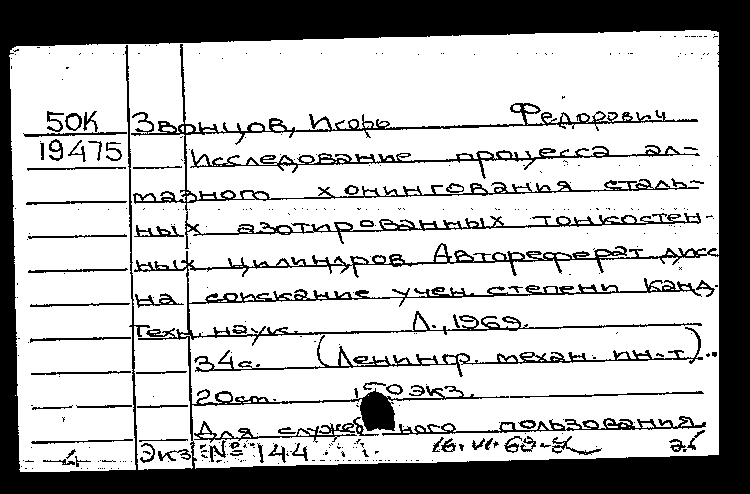 50К Звонцов, Игорь Федорович
19475 Исследование процесса ал-
мазного хонингования сталь-
ных азотированных тонкостен-
ных цилиндров. Автореферат дисс
на соискание учен. степени канд.
техн. наук. Л., 1969.
34с. (Ленингр. механ. ин-т)..
20см. 150 экз.
Для служебного пользования.
Экз. № 144